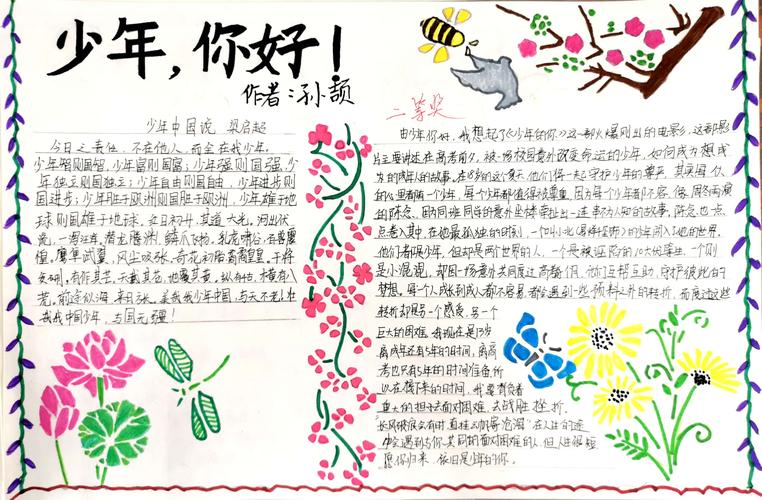 少年，你好！
作者：孙颉
二等奖
少年中国说 梁启超
今日之责任，不在他人，而全在我少年。
少年智则国智，少年富则国富；少年强则国强，少
年独立则国独立；少年自由则国自由，少年进步则
国进步；少年胜于欧洲则国胜于欧洲，少年雄于地
球则国雄于地球。红日初升，其道大光。河出伏
流，一泻汪洋。潜龙腾渊，鳞爪飞扬。乳虎啸谷，百兽震
惶。鹰隼试翼，风尘吸张。奇花初胎，矞矞皇皇。干将
发硎，有作其芒。天戴其苍，地履其黄。纵有千古，横有八
荒。前途似海，来日方长。美哉我少年中国，与天不老！壮
哉我中国少年，与国无疆！
由少年你好，我想起了《少年的你》这一部火爆刚出的电影，这部影
片主要讲述在高考前夕，被一场校园意外改变命运的少年，如何成为想成
为的成年人的故事。在18岁的这个夏天，他们得一起守护少年的尊严。其实
的心里都有一个少年，每个少年都值得被尊重，因为每个少年都不容易。
的陈念，因同班同学的意外坠楼牵扯出一连串不为人知的故事，陈念也一点
点卷入其中，在她最孤独的时刻，一个叫小北的少年闯入她的世界。
他们都是少年，但却是两个世界的人，一个是
是小混混，却因一场意外共同度过高考前夕，他们互帮互助，守护彼此的
梦想。每一个人成长到成人都不容易，都会遇到一些预料之外的转折，而度过这些
转折却是另一个感受，另一个
巨大的困难。我现在是13岁
离成年还有5年的时间，离高
考也只有5年的时间准备，所
以在接下来的时间，我要肩负着
重大的担子去面对困难，去战胜挫折。
长风破浪会有时，直挂云帆济沧海。在人生的途
中会遇到与你共同的面对困难的人，但人生很短
愿你归来，依旧是少年的你。